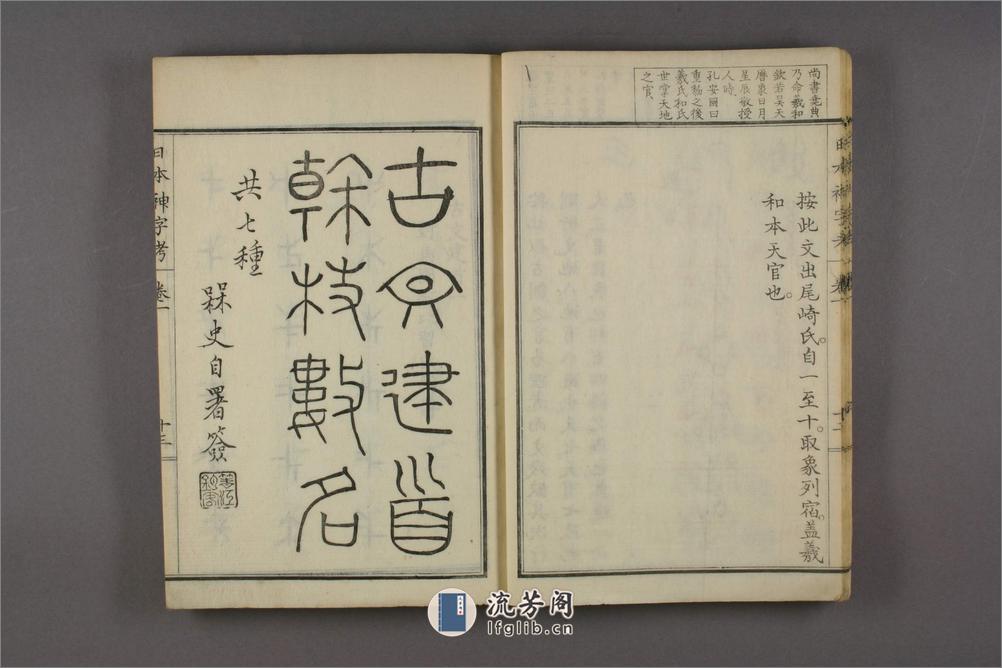 尚書堯典
乃命羲和
欽若昊天
曆象日月
星辰敬授
人時
孔安國曰
重黎之後
羲氏和氏
世掌天地
之官
按此文出尾崎氏。自一至十。取象列宿。盖羲
和本天官也。
古建首
榦枝數名
共七種
槑史自署簽
日本神字考 卷一
十三
流芳阁
lfglib.cn